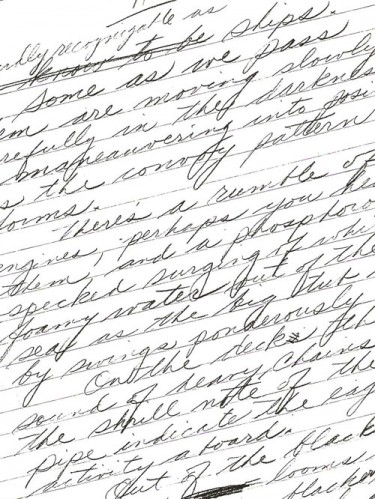 recognizable as
know to be ships.
Some as we pass
em are moving slowly
refully in the darkness
maneauvering into posi
s the convoy pattern
forms.
There's a rumble of
engines, perhaps you hea
them, and a phosphoro
specked surging of whi
foamy water out of the
sea as the big tub
by swings ponderously
On the decks th
sound of heavy chains
the shrill note of the
pipe indicate the eag
activity aboard.
Out of the black
looms
blacker